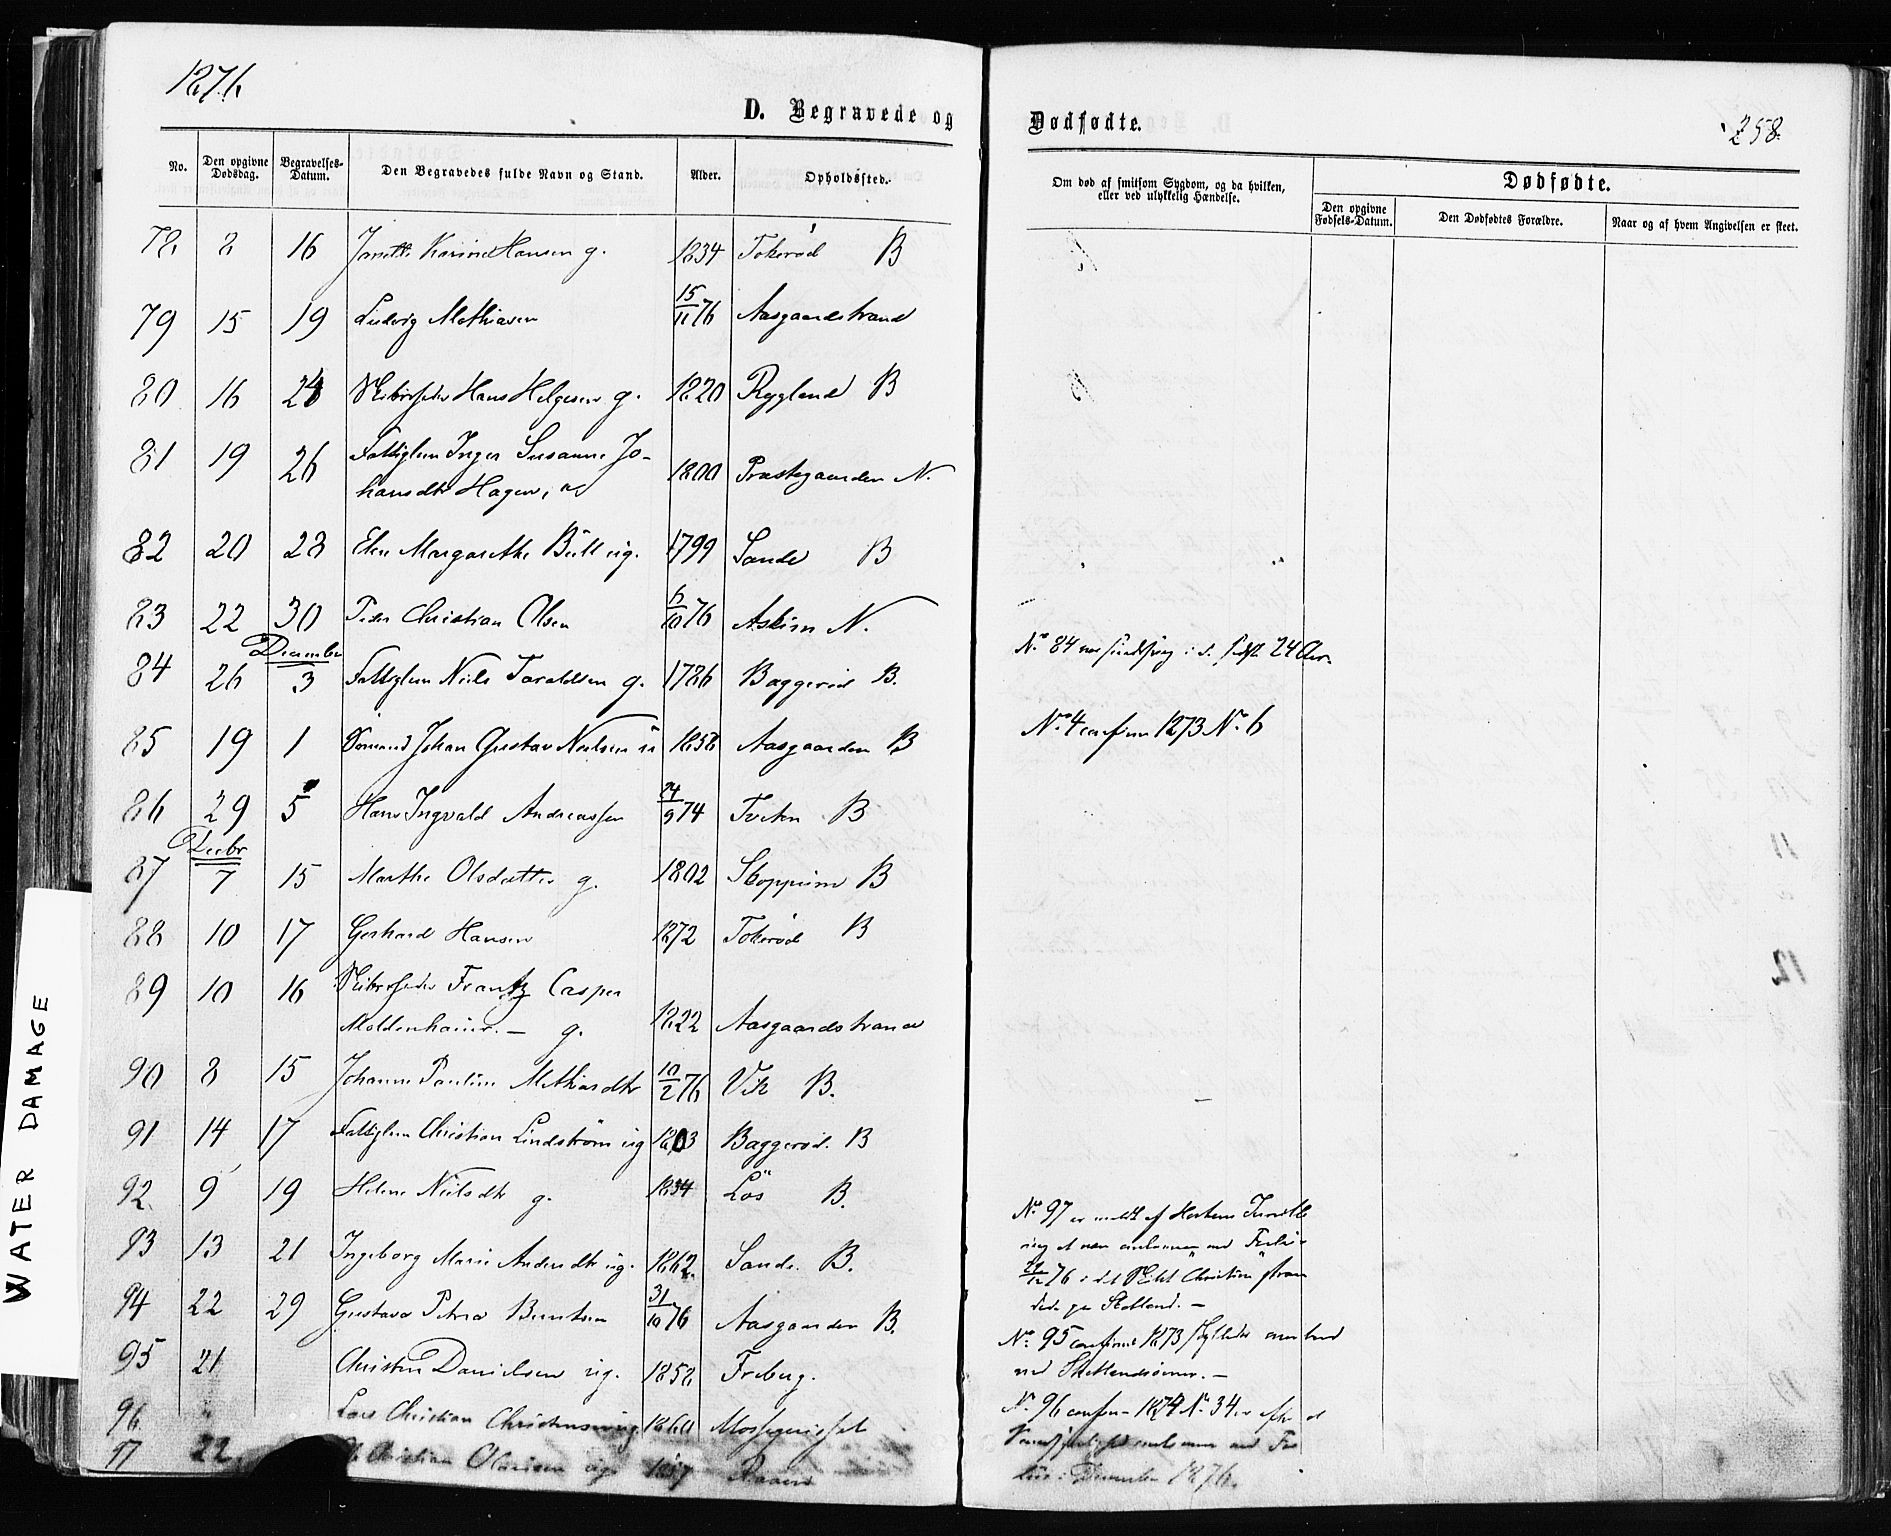 1876.
D. Begravede og Dødfødte.
258.
No.
Den opgivne Dødsdag.
Begravelses-Datum.
Den Begravedes fulde Navn og Stand.
Alder.
Opholdssted.
Om død af smitsom Sygdom, og da hvilken, eller ved ulykkelig Hændelse.
Dødfødte.
Den opgivne Fødsels-Datum.
Den Dødfødtes Forældre.
Naar og af hvem Angivelsen er skeet.
78. 8 16 Hansen g. 1834 Tokerød B
79 15 19 Ludvig Mathiasen 15/11 76 Aasgaardstrand
80 16 24 Hans Helgesen g. 1820 Rygland B
81 19 26 Fattiglem Inger Susanne Jo-
hansdtr Hagen, 1800 Præstegaarden N.
82 20 28 Elen Margarethe Bull ug. 1799 Sande B
83 22 30 Peder Christian Olsen 6/10 76 Askim N.
December
84 26 3 Fattiglem Niels Taraldsen g. 1786 Baggerød B.
No 84 24 Aar
85 19 1 Sømand Johan Gustav Nielsen 1858 Aasgaarden B
No. 4 confirm 1873 No. 6
86 29 5 Hans Ingvald Andreassen 24/9 74 Tveten B
Decbr
87 7 15 Marthe Olsdatter g. 1802 Skoppum B
88 10 17 Gerhard Hansen 1872 Tokerød B
89 10 16 Frantz Casper
Moldenhauer. — g. 1822 Aasgaardstrand
90 8 15 Johanne Pauline Mathiasdtr 10/2 76 Vik B.
91 14 17 Fattiglem Christian Lindstrøm ug 1803 Baggerød. B
92. 9 19 Helene Nielsdtr g. 1834 Løs B.
93 13 21 Ingeborg Marie Andersdtr ug. 1862. Sande. B.
94 22 29 Gustava Petrea Berntsen 31/10 76 Aasgaarden B.
95 21 Christen Danielsen ug. 1858 Freberg.
96. " Lars Christian Christensen ug 1860
97 22 Christian Olausen ug. Raaen
No. 97 er meldt af
at være omkommen ved Forlis
/12 76 i Christian
paa Shetland. —
No. 95 confirm 1873
ved Shetlandsøerne. —
No. 96 confirm 1874 No. 34 er efter
omkommen ved For-
lis i December 1876.
WATER DAMAGE